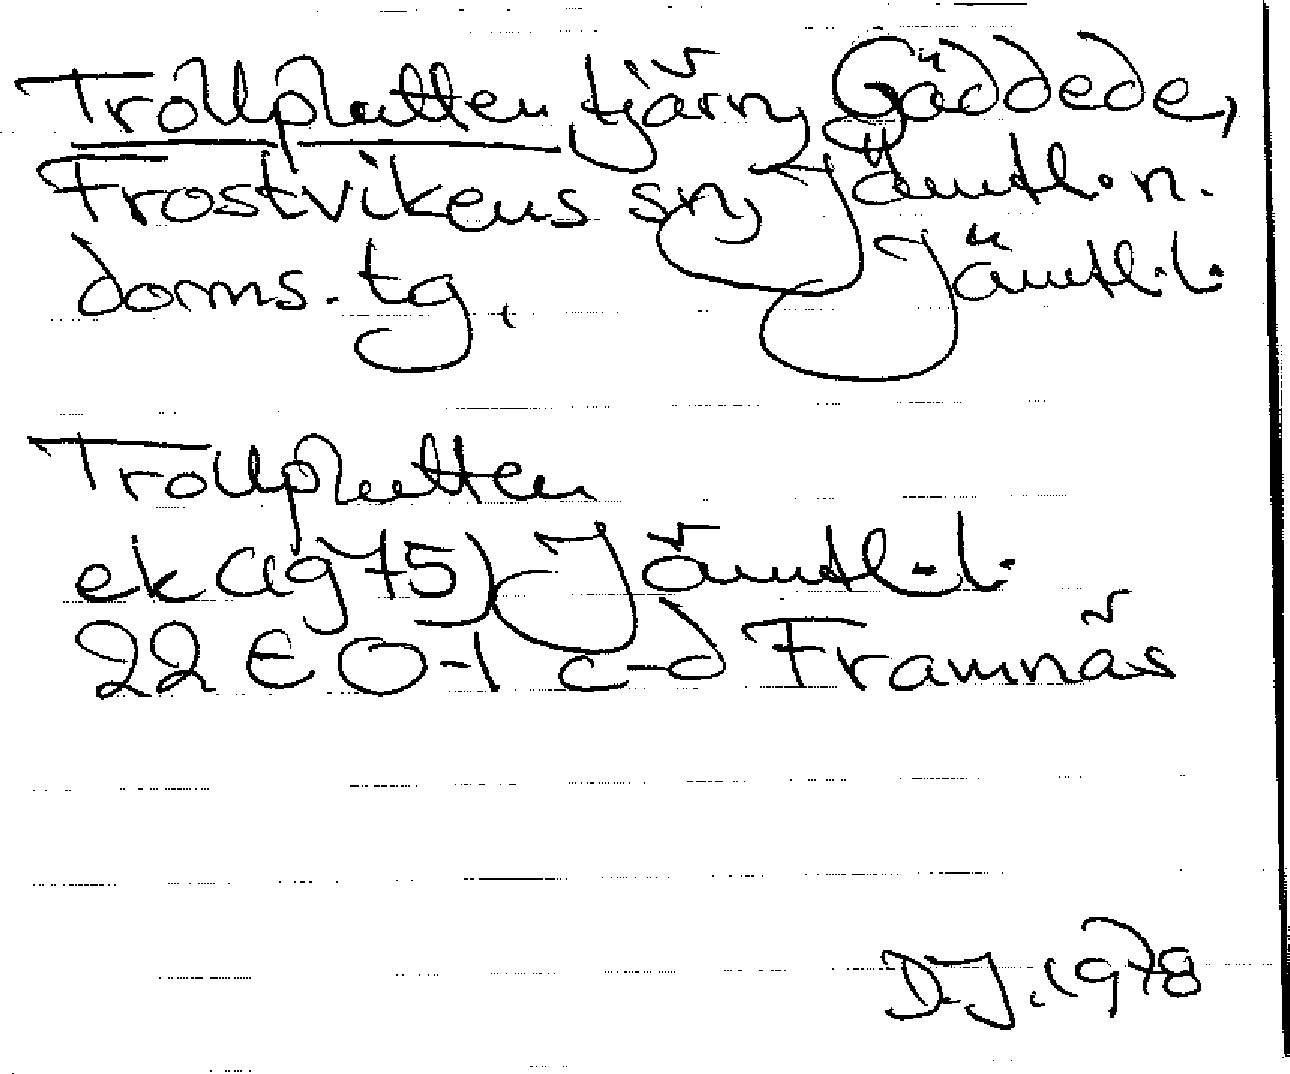 Trollplutten tjärn, Gäddede,
Frostvikens sn, Jämtl. n.
doms. tg. Jämtl. l.
Trollplutten
ek (19 75) Jämtl. l.
22 E 0-1 c-d Framnäs
D.J. 1978